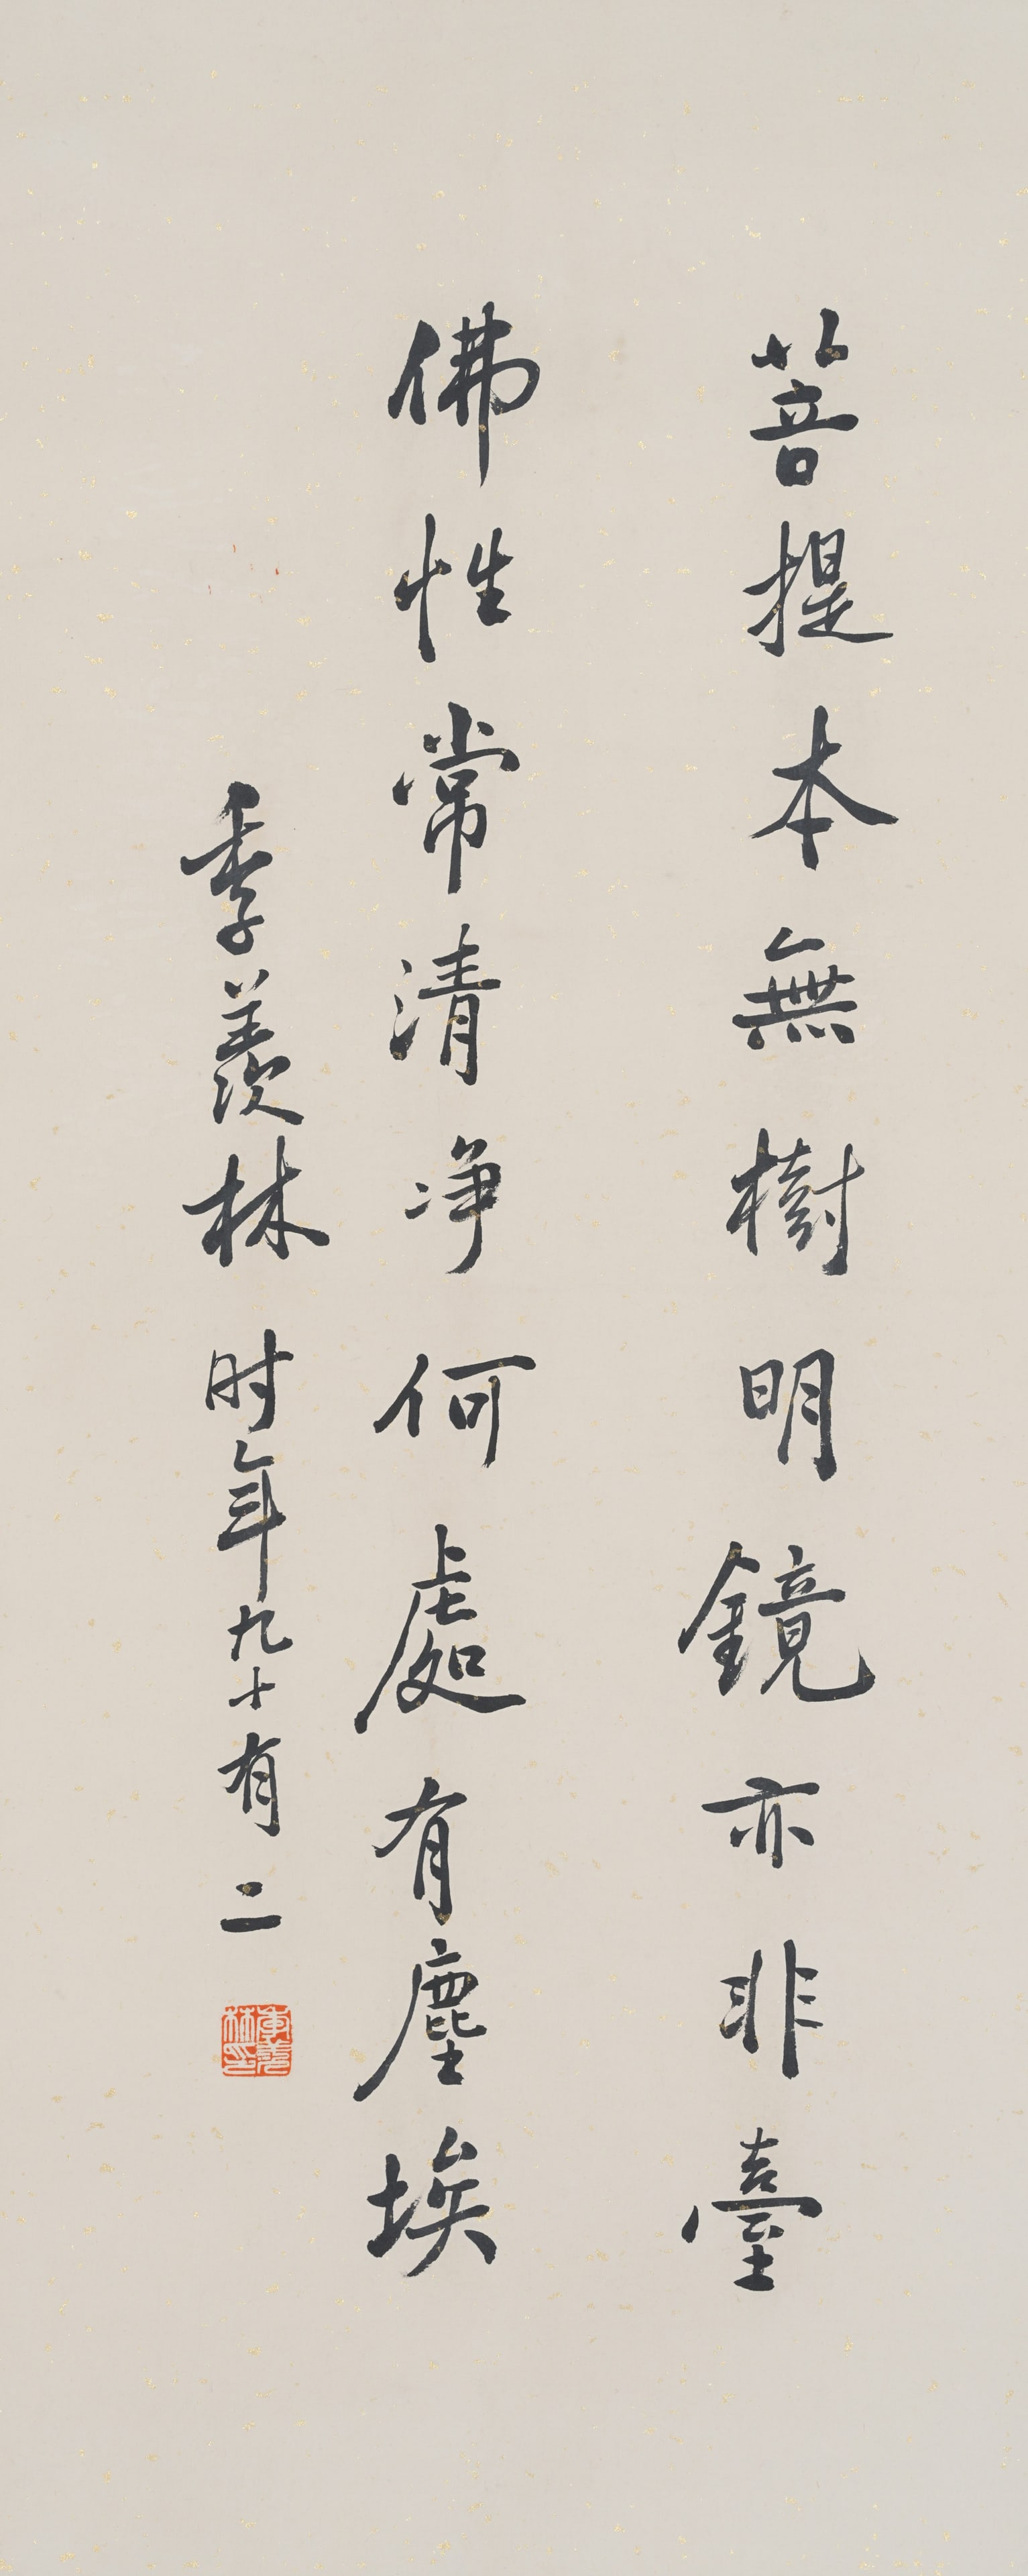 菩提本無樹明鏡亦非臺
佛性常清净何處有塵埃
季羨林 时年九十有二
季羨林印